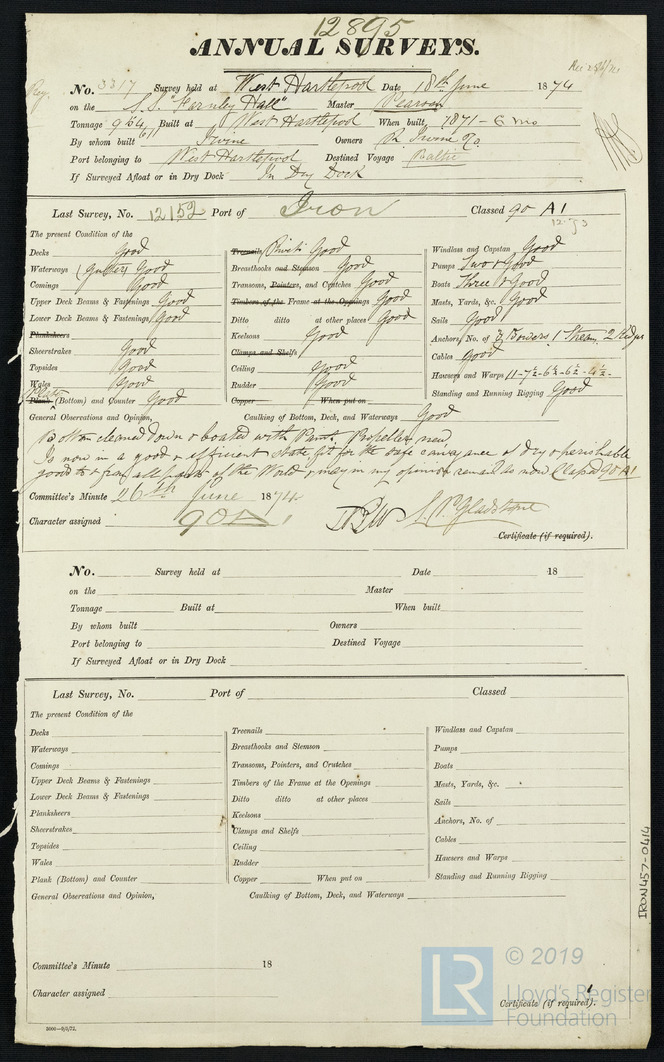 12895
ANNUAL SURVEYS.
No. 3317 Survey held at West Hartlepool Date 18th June 1874
on the S.S. "Farnley Hall" Master Pearson
Tonnage 964 Built at West Hartlepool When built, 1871 - 6 mo
By whom built Irvine Owners R. Irvine & Co.
Port belonging to West Hartlepool Destined Voyage Baltic
If Surveyed Afloat or in Dry Dock In Dry Dock
Last Survey, No. 12152 Port of Iron Classed 90 A1
12.73
The present Condition of the
Decks Good
Waterways (gutters) Good
Comings Good
Upper Deck Beams & Fastenings Good
Lower Deck Beams & Fastenings Good
Planksheers
Sheerstrakes Good
Topsides Good
Wales Good
Plank (Bottom) and Counter Good
General Observations and Opinion,
Treenails Rivets Good
Breasthooks and Stemson Good
Transoms, Pointers, and Crutches Good
Timbers of the Frame at the Openings Good
Ditto ditto at other places Good
Keelsons Good
Clamps and Shelfs
Ceiling Good
Rudder Good
Copper When put on
Caulking of Bottom, Deck, and Waterways Good
Windlass and Capstan Good
Pumps Two & Good
Boats Three & Good
Masts, Yards, &c. Good
Sails Good
Anchors, No. of 3 Bowers 1 Stream 2 Kedges
Cables Good
Hawsers and Warps
Standing and Running Rigging Good
Bottom cleaned down & coated with Paint, Propeller new,
Is now in a good & efficient state, fit for the safe conveyance of dry & perishable
goods to & from all parts of the World & may in my opinion remain as now Classed 90 A1
Committee's Minute 26th June 1874
Character assigned 90A1
Certificate (if required).
No. Survey held at Date 18
on the Master
Tonnage Built at When built
By whom built Owners
Port belonging to Destined Voyage
If Surveyed Afloat or in Dry Dock
Last Survey, No. Port of Classed
The present Condition of the
Decks
Waterways
Comings
Upper Deck Beams & Fastenings
Lower Deck Beams & Fastenings
Planksheers
Sheerstrakes
Topsides
Wales
Plank (Bottom) and Counter
General Observations and Opinion,
Treenails
Breasthooks and Stemson
Transoms, Pointers, and Crutches
Timbers of the Frame at the Openings
Ditto ditto at other places
Keelsons
Clamps and Shelfs
Ceiling
Rudder
Copper When put on
Caulking of Bottom, Deck, and Waterways
Windlass and Capstan
Pumps
Boats
Masts, Yards, &c.
Sails
Anchors, No. of
Cables
Hawsers and Warps
Standing and Running Rigging
Committee's Minute 18
Character assigned
Certificate (if required).
IRON457-0414
LR
© 2019
Lloyd's Register
Foundation